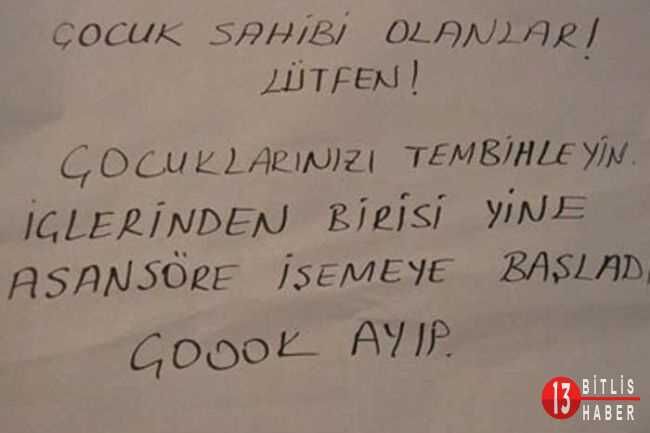 ÇOCUK SAHİBİ OLANLAR!
LÜTFEN!
ÇOCUKLARINIZI TEMBİHLEYİN.
İÇLERİNDEN BİRİSİ YİNE
ASANSÖRE İŞEMEYE BAŞLADI
ÇOOOK AYIP.
13 BİTLİS
HABER